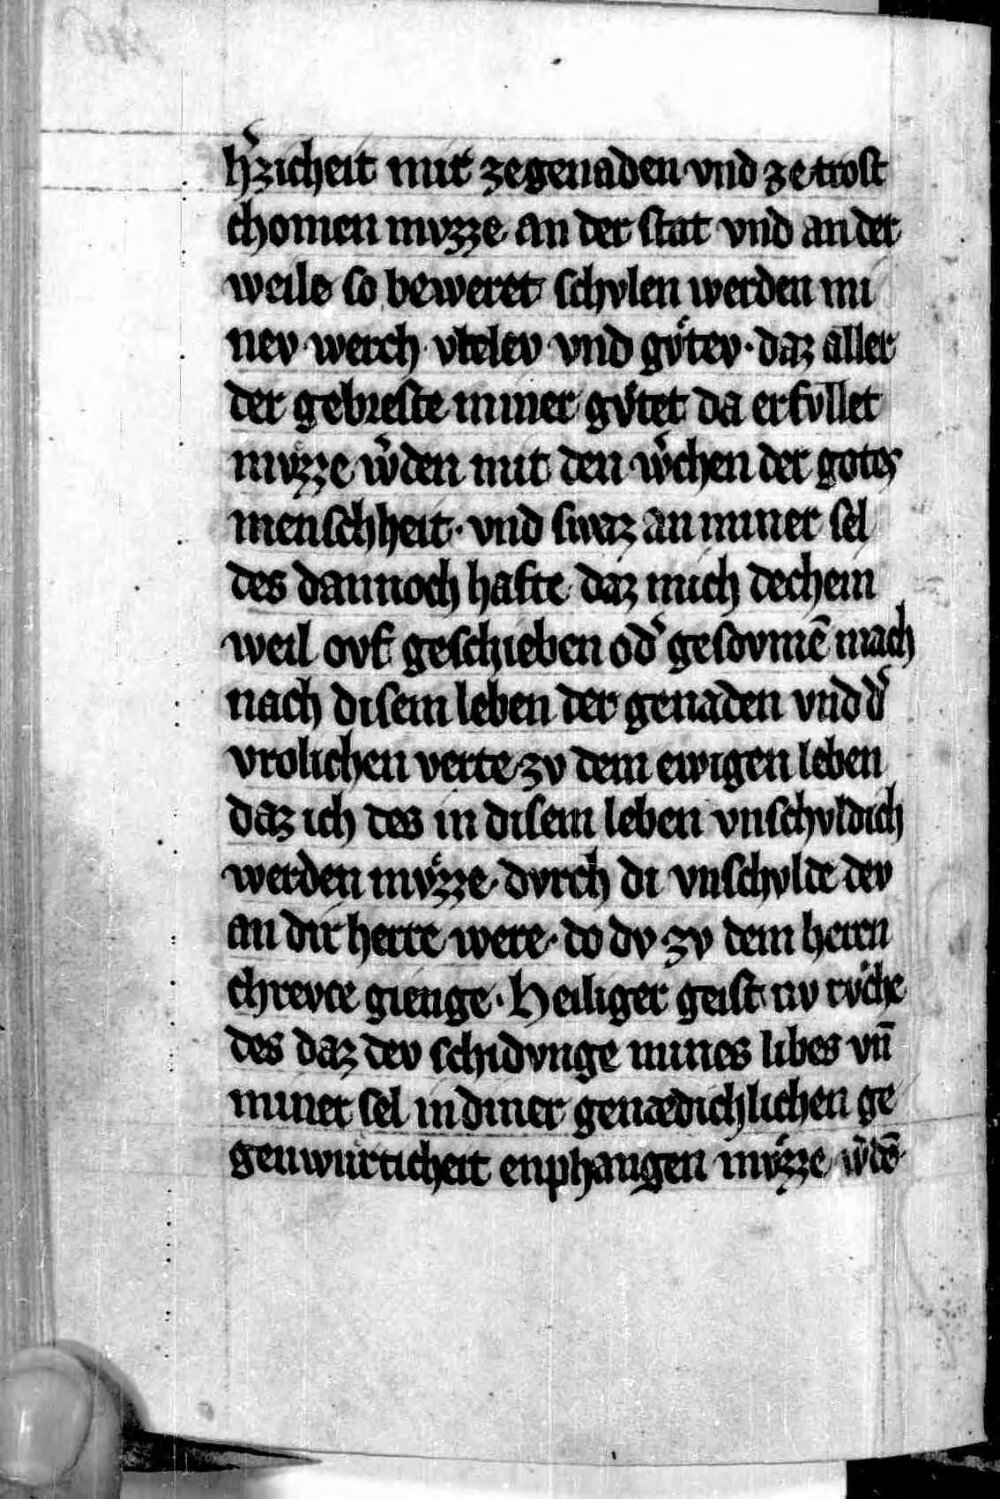 hᵉzicheit mir zegenaden vnd ze trost
chomen mvzze an der stat vnd an der
weile so beweret schvlen werden mi
nev werch vbelev vnd gvͤtev · daz aller
der gebreste miner gvͤtet da erfvllet
mvͤzze wͤden mit den wͤchen der gotes
menschheit · vnd swaz an miner sel
des dannoch hafte daz mich dechein
weil ovf geschieben odᵉ gesovmē mach
nach disem leben der genaden vnd dᵉ
vrolichen verte zv dem ewigen leben
daz ich des in disem leben vnschvldich
werden mvͤzze dvrch di vnschvlde dev
an dir herre were · do dv zv dem herren
chrevce gienge · Heiliger geist nv rvͤche
des daz dev schidvnge mines libes vn̄
miner sel in diner genædichlichen ge
genwurticheit enphangen mvͤzze wͤdē